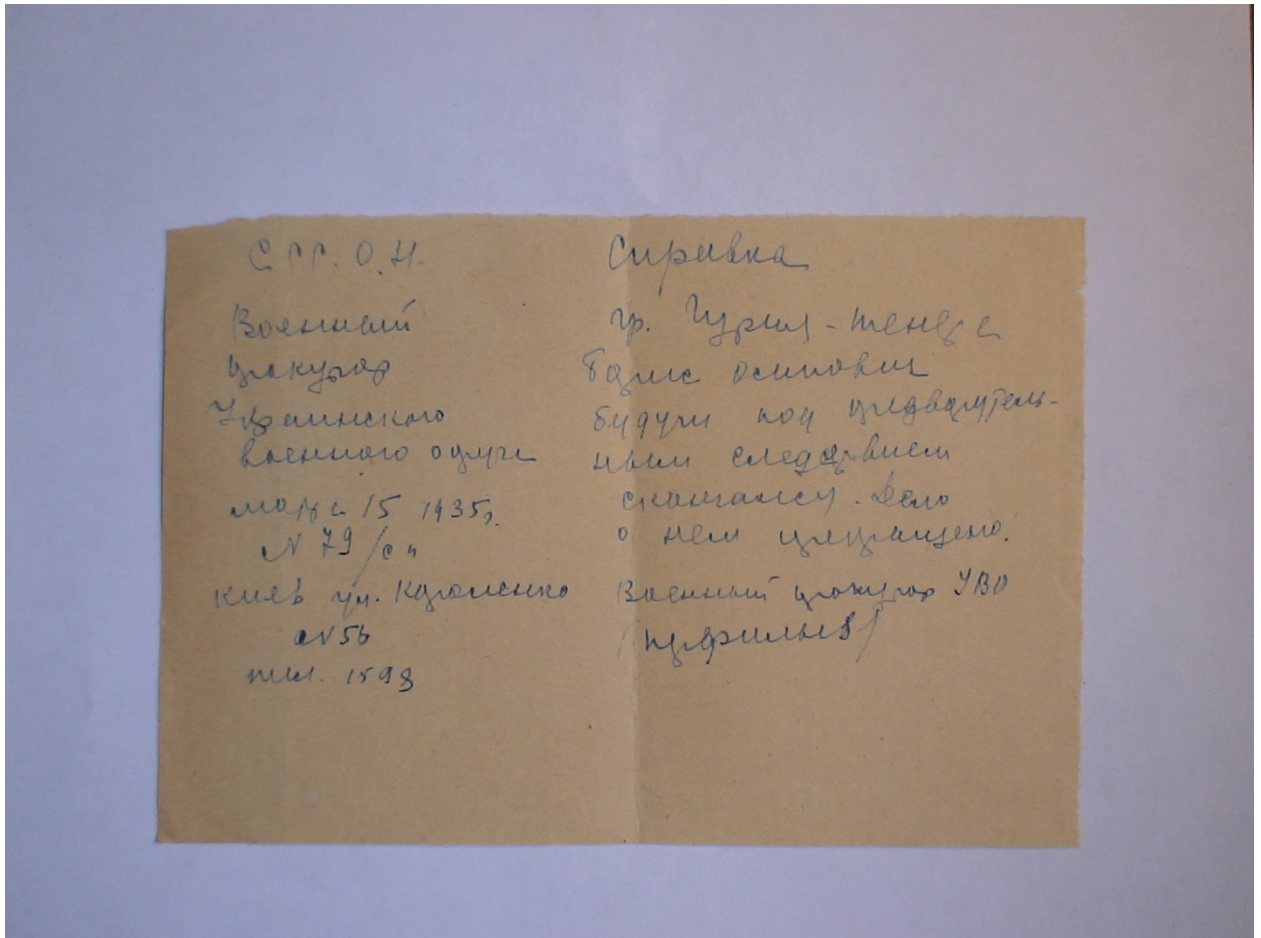 С С С Р. О. Н.
Военный
прокурор
Украинского
военного округа
марта 15 1935 г.
N 79/сп
Киев ул. Короленко
N 56
тел. 1598
Справка
гр.
Борис Осипович
будучи под предварутель-
ным следствием
скончался. Дело
о нем прекращено.
Военный прокурор УВО
/Перфильев/